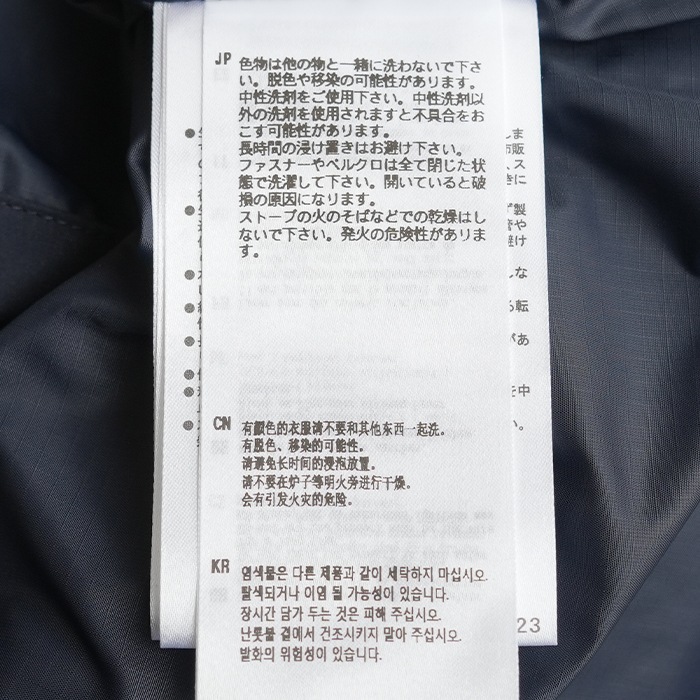 JP 色物は他の物と一緒に洗わないで下さ
い。脱色や移染の可能性があります。
中性洗剤をご使用下さい。中性洗剤以
外の洗剤を使用されますと不具合をお
こす可能性があります。
長時間の浸け置きはお避け下さい。
ファスナーやベルクロは全て閉じた状
態で洗濯して下さい。開いていると破
損の原因になります。
ストーブの火のそばなどでの乾燥はし
ないで下さい。発火の危険性がありま
す。
CN 有颜色的衣服请不要和其他东西一起洗。
有脱色、移染的可能性。
请避免长时间的浸泡放置。
请不要在炉子等明火旁进行干燥。
会有引发火灾的危险。
KR 염색물은 다른 제품과 같이 세탁하지 마십시오.
탈색되거나 이염 될 가능성이 있습니다.
장시간 담가 두는 것은 피해 주십시오.
난롯불 곁에서 건조시키지 말아 주십시오.
발화의 위험성이 있습니다.
23